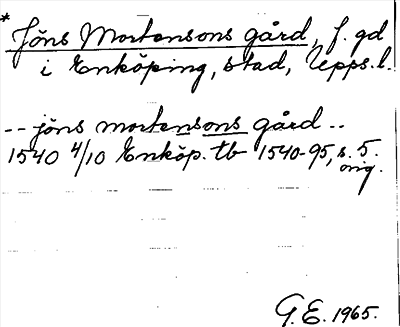 * Jöns Mortensons gård, f. gd
i Enköping, stad, Upps. l.
-- jöns mortensons gård --
1540 4/10 Enköp. tb 1540-95, s. 5.
orig.
G.E. 1965.